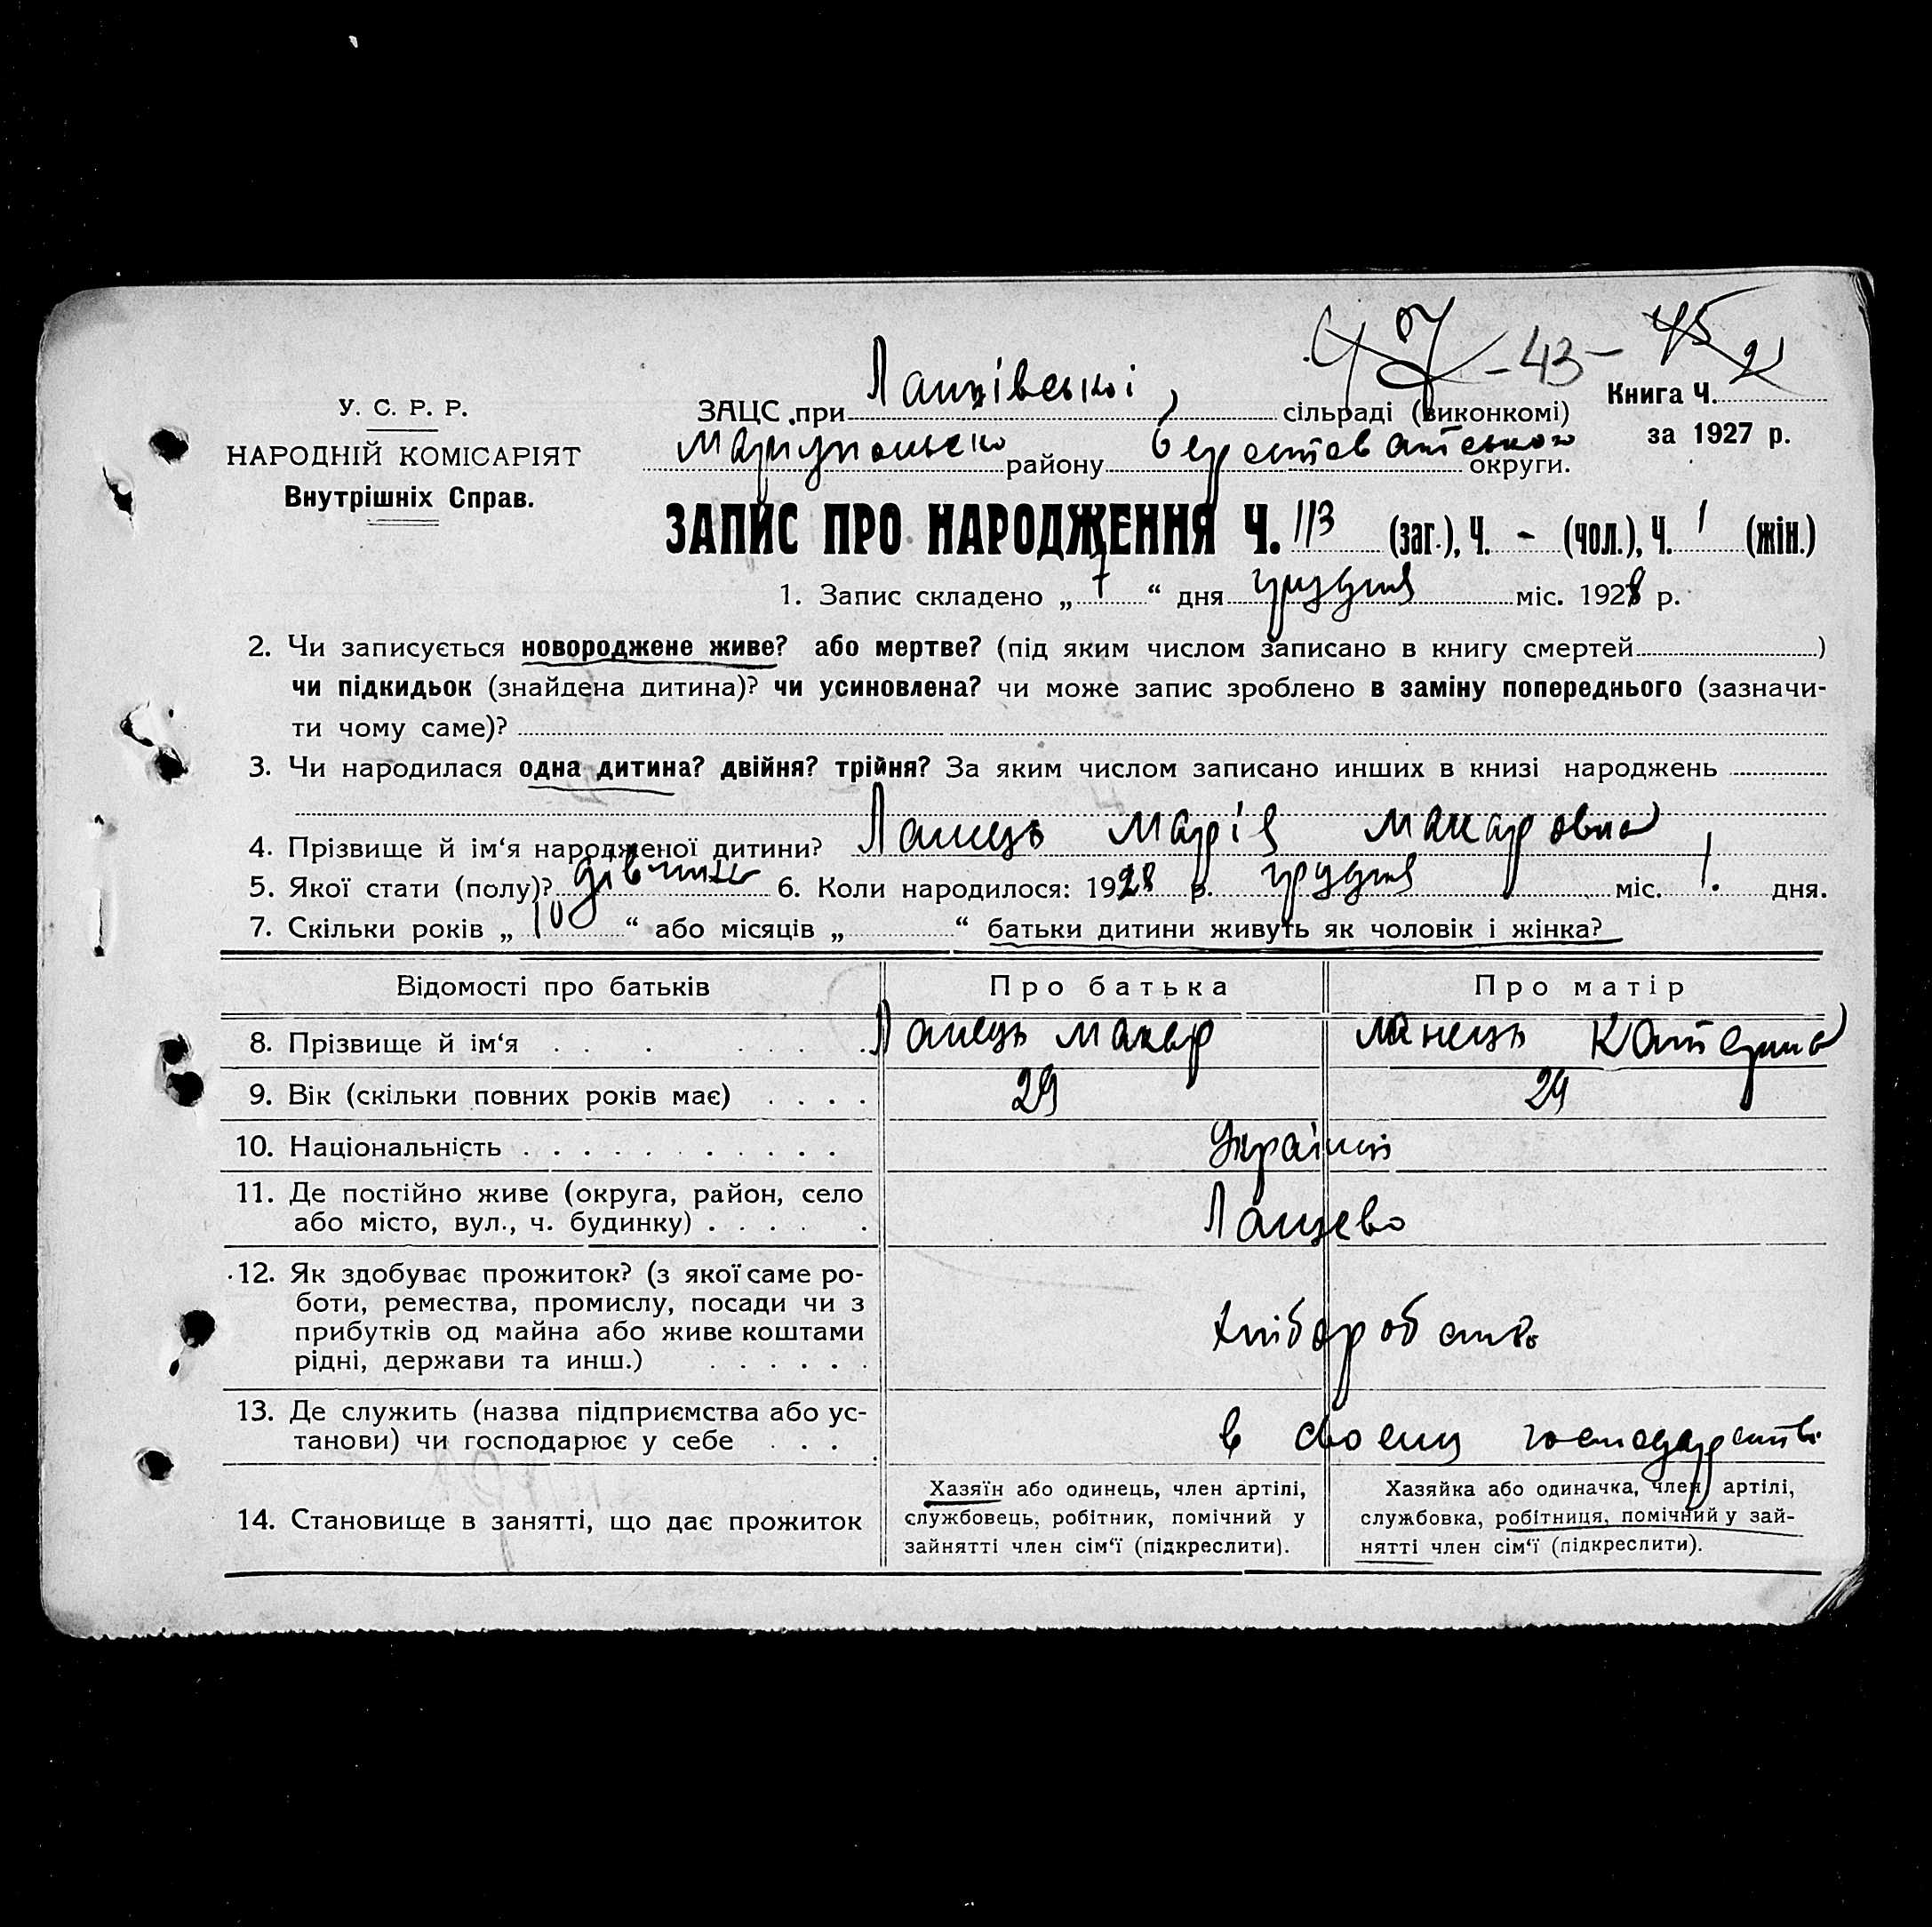 47 - 43 - 45
У. С. Р. Р.
НАРОДНІЙ КОМІСАРІЯТ
Внутрішніх Справ.
ЗАЦС при Ланцівській сільраді (виконкомі)
Книга Ч. 2
за 1927 р.
району округи.
ЗАПИС ПРО НАРОДЖЕННЯ Ч. 113 (заг.), Ч. - (чол.), Ч. 1 (жін.)
1. Запис складено „ 7 “ дня грудня міс. 1928 р.
2. Чи записується новороджене живе? або мертве? (під яким числом записано в книгу смертей )
чи підкидьок (знайдена дитина)? чи усиновлена? чи може запис зроблено в заміну попереднього (зазначи-
ти чому саме)?
3. Чи народилася одна дитина? двійня? трійня? За яким числом записано инших в книзі народжень
4. Прізвище й ім‘я народженої дитини? Ланець Марія Макаровна
5. Якої стати (полу)? дівчина 6. Коли народилося: 1928 р. грудня міс. 1. дня.
7. Скільки років „ 10 “ або місяців „ “ батьки дитини живуть як чоловік і жінка?
Відомості про батьків Про батька Про матір
8. Прізвище й ім‘я . . . . . . . . Ланець Макар Ланець Катерина
9. Вік (скільки повних років має) . . . . 29 29
10. Національність . . . . . . . . . . . Українці
11. Де постійно живе (округа, район, село
або місто, вул., ч. будинку) . . . . . Ланцево
12. Як здобуває прожиток? (з якої саме ро-
боти, ремества, промислу, посади чи з
прибутків од майна або живе коштами
рідні, держави та инш.) . . . . . . Хліборобство
13. Де служить (назва підприємства або ус-
танови) чи господарює у себе . . . . в своему господарстві
14. Становище в занятті, що дає прожиток
Хазяїн або одинець, член артілі,
службовець, робітник, помічний у
зайнятті член сім‘ї (підкреслити).
Хазяйка або одиначка, член артілі,
службовка, робітниця, помічний у зай-
нятті член сім‘ї (підкреслити).